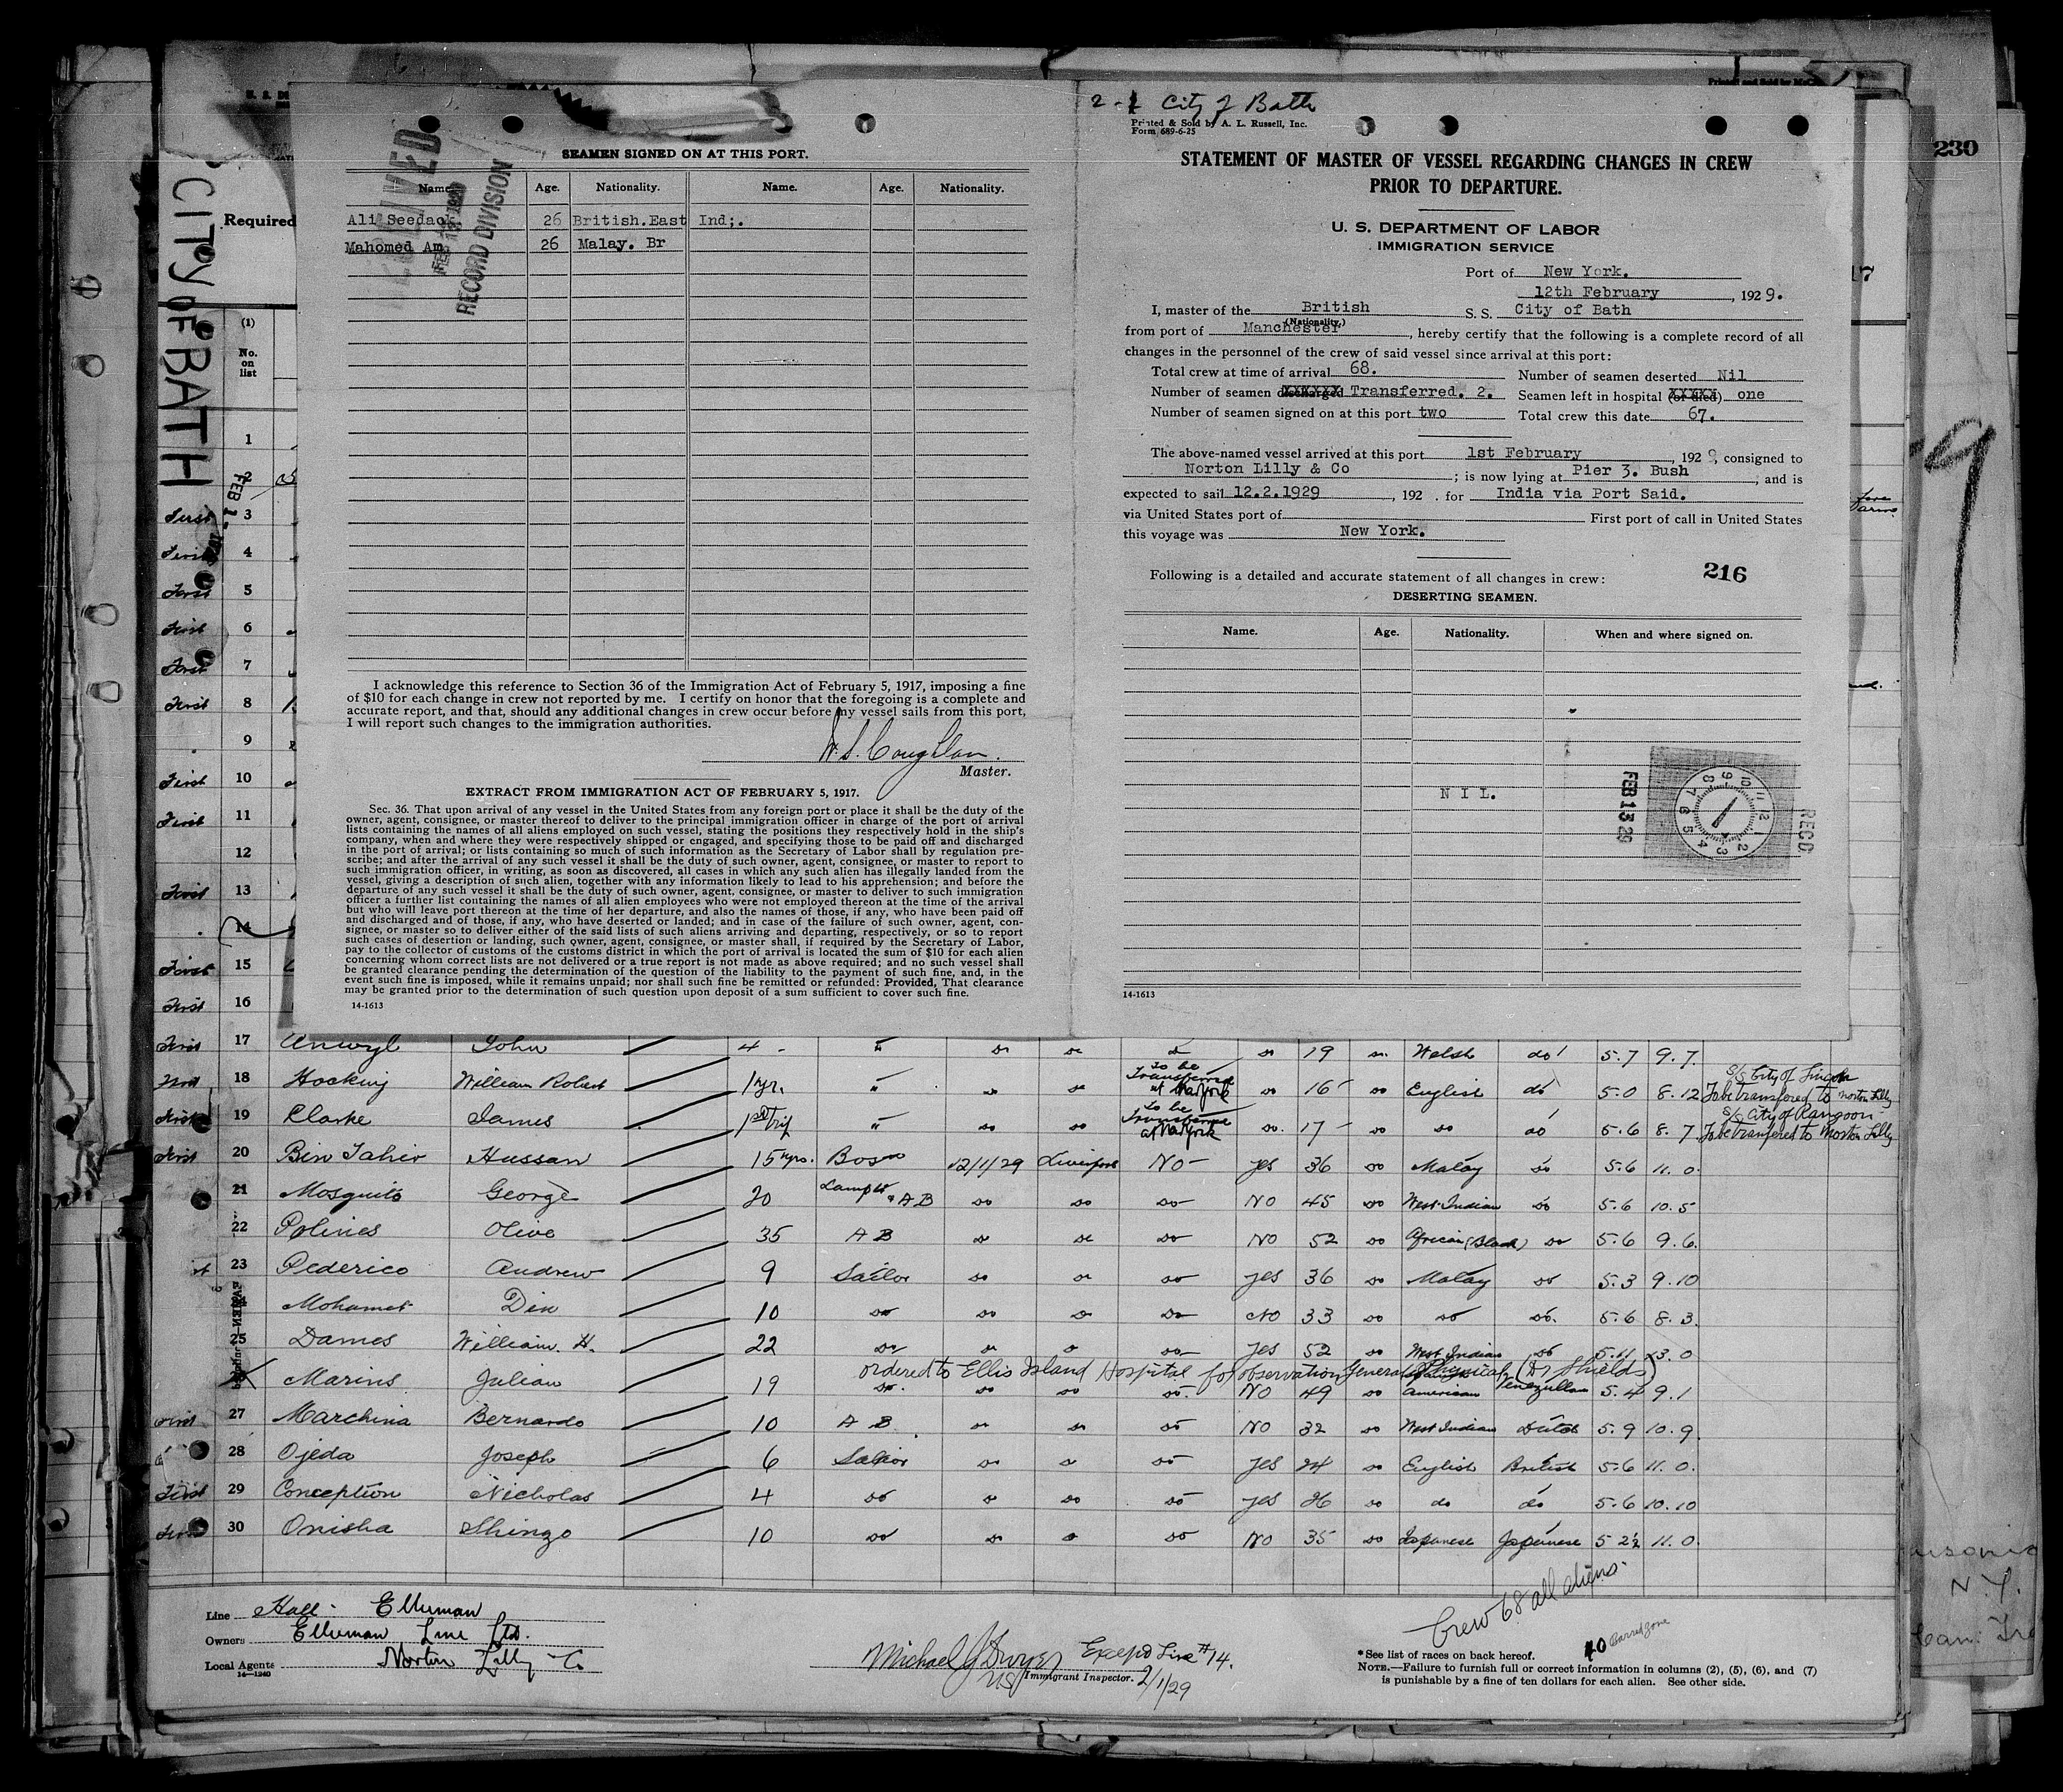 230
CITY OF BATH
Required
SEAMEN SIGNED ON AT THIS PORT.
Name. Age. Nationality. Name. Age. Nationality.
Ali Seedack 26 British.East Ind;.
Mahomed Am 26 Malay. Br
RECEIVED
RECORD DIVISION
I acknowledge this reference to Section 36 of the Immigration Act of February 5, 1917, imposing a fine
of $10 for each change in crew not reported by me. I certify on honor that the foregoing is a complete and
accurate report, and that, should any additional changes in crew occur before my vessel sails from this port,
I will report such changes to the immigration authorities.
W. S. Coughlan.
Master.
EXTRACT FROM IMMIGRATION ACT OF FEBRUARY 5, 1917.
Sec. 36. That upon arrival of any vessel in the United States from any foreign port or place it shall be the duty of the
owner, agent, consignee, or master thereof to deliver to the principal immigration officer in charge of the port of arrival
lists containing the names of all aliens employed on such vessel, stating the positions they respectively hold in the ship's
company, when and where they were respectively shipped or engaged, and specifying those to be paid off and discharged
in the port of arrival; or lists containing so much of such information as the Secretary of Labor shall by regulation pre-
scribe; and after the arrival of any such vessel it shall be the duty of such owner, agent, consignee, or master to report to
such immigration officer, in writing, as soon as discovered, all cases in which any such alien has illegally landed from the
vessel, giving a description of such alien, together with any information likely to lead to his apprehension; and before the
departure of any such vessel it shall be the duty of such owner, agent, consignee, or master to deliver to such immigration
officer a further list containing the names of all alien employees who were not employed thereon at the time of the arrival
but who will leave port thereon at the time of her departure, and also the names of those, if any, who have been paid off
and discharged and of those, if any, who have deserted or landed; and in case of the failure of such owner, agent, con-
signee, or master so to deliver either of the said lists of such aliens arriving and departing, respectively, or so to report
such cases of desertion or landing, such owner, agent, consignee, or master shall, if required by the Secretary of Labor,
pay to the collector of customs of the customs district in which the port of arrival is located the sum of $10 for each alien
concerning whom correct lists are not delivered or a true report is not made as above required; and no such vessel shall
be granted clearance pending the determination of the question of the liability to the payment of such fine, and, in the
event such fine is imposed, while it remains unpaid; nor shall such fine be remitted or refunded: Provided, That clearance
may be granted prior to the determination of such question upon deposit of a sum sufficient to cover such fine.
14-1613
City of Bath
Printed & Sold by A. L. Russell, Inc.
Form 689-6-25
STATEMENT OF MASTER OF VESSEL REGARDING CHANGES IN CREW
PRIOR TO DEPARTURE.
U. S. DEPARTMENT OF LABOR
IMMIGRATION SERVICE
Port of New York.
12th February, 1929.
I, master of the British S. S. City of Bath
(Nationality.)
from port of Manchester, hereby certify that the following is a complete record of all
changes in the personnel of the crew of said vessel since arrival at this port:
Total crew at time of arrival 68. Number of seamen deserted Nil
Number of seamen discharged Transferred. 2. Seamen left in hospital (or died) one
Number of seamen signed on at this port two Total crew this date 67.
The above-named vessel arrived at this port 1st February, 1929, consigned to
Norton Lilly & Co; is now lying at Pier 3. Bush, and is
expected to sail 12.2.1929, 192 . for India via Port Said.
via United States port of First port of call in United States
this voyage was New York.
Following is a detailed and accurate statement of all changes in crew: 216
DESERTING SEAMEN.
Name. Age. Nationality. When and where signed on.
N I L.
FEB 13 29
REC'D
14-1613
(1)
No.
on
list
1
2
First 3
First 4
First 5
First 6
First 7
First 8
9
First 10
First 11
12
First 13
14
First 15
First 16
First 17 Anwyl John 4 - " do do do do 19 do Welsh do 5.7 9.7.
First 18 Hocking William Robert 1 yr. " do do To be Transferred at New York do 16 do English do 5.0 8.12 S/S City of Lincoln To be transfered to Norton Lilly
First 19 Clarke James 1st Trip " do do To be Transferred at New York do 17 do do do 5.6 8.7 S/S City of Rangoon To be transfered to Norton Lilly
First 20 Bin Tahir Hussan 15 yrs. Bosn 12/1/29 Liverpool No yes 36 do Malay do 5.6 11.0
21 Mosquito George 20 Lamps & AB do do do No 45 do West Indian do 5.6 10.5
22 Polines Olive 35 AB do do do No 52 do African (Black) do 5.6 9.6.
23 Pederico Andrew 9 Sailor do do do yes 36 do Malay do 5.3 9.10
Mohamet Din 10 do do do do No 33 do do do. 5.6 8.3.
25 Dames William H. 22 do do do do yes 52 do West Indian do 5.11 13.0
ordered to Ellis Island Hospital for observation General Physical (Dr Shields)
Marins Julian 19 do. do do do. No 49 do American Venezullan 5.4 9.1
First 27 Marchina Bernardo 10 AB do do do No 32 do West Indian Dutch 5.9 10.9
28 Ojeda Joseph 6 Sailor do do do yes 24 do English British 5.6 11.0.
First 29 Conception Nicholas 4 do do do do yes 26 do do do 5.6 10.10
First 30 Onisha Shingo 10 do do do do No 35 do Japanese Japanese 5 2½ 11.0.
Crew 68 all aliens.
Line Hall - Ellerman
Owners Ellerman Line Ltd.
Local Agents Norton Lilly Co
14-1240
Michael J Dwyer Except Line #14.
US Immigrant Inspector. 2/1/29
40 Barred zone
*See list of races on back hereof.
NOTE.—Failure to furnish full or correct information in columns (2), (5), (6), and (7)
is punishable by a fine of ten dollars for each alien. See other side.
N.Y.